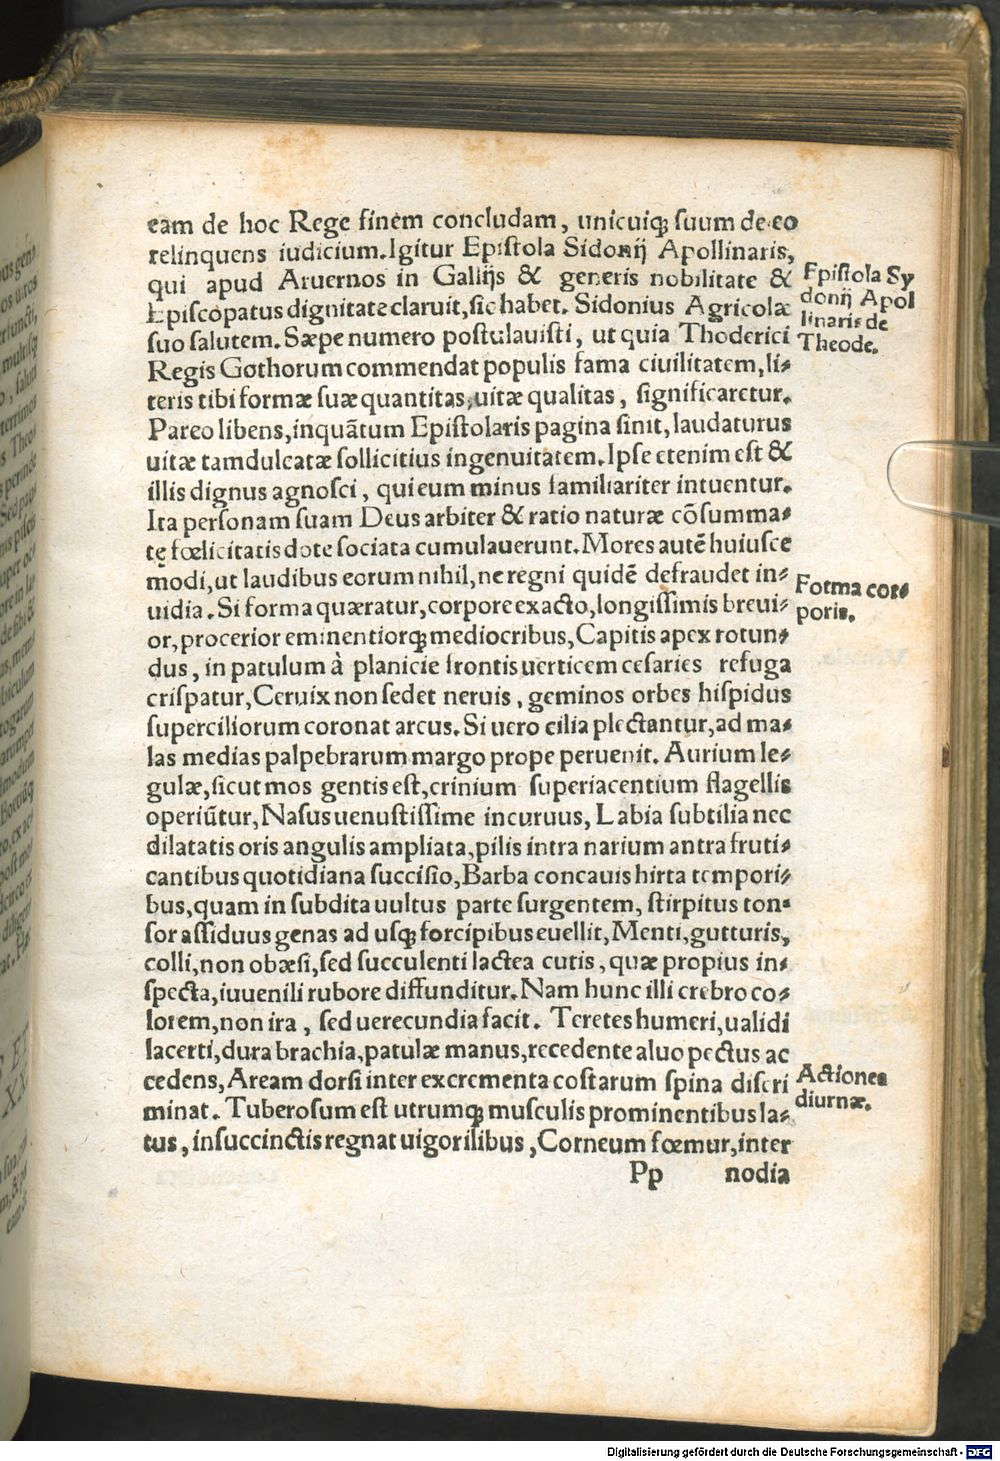 eam de hoc Rege finem concludam, unicuiqꝫ ſuum de eo
relinquens iudicium. Igitur Epiſtola Sidonij Apollinaris,
qui apud Aruernos in Gallijs & generis nobilitate &
Epiſcopatus dignitate claruit, ſic habet. Sidonius Agricolæ
ſuo ſalutem. Sæpe numero poſtulauiſti, ut quia Thoderici
Regis Gothorum commendat populis fama ciuilitatem, li⸗
teris tibi formæ ſuæ quantitas, uitæ qualitas, ſignificaretur.
Pareo libens, inquātum Epiſtolaris pagina ſinit, laudaturus
uitæ tamdulcatæ ſollicitius ingenuitatem. Ipſe etenim eſt &
illis dignus agnoſci, qui eum minus familiariter intuentur.
Ita perſonam ſuam Deus arbiter & ratio naturæ cōſumma⸗
tę fœlicitatis dote ſociata cumulauerunt. Mores autē huiuſce
modi, ut laudibus eorum nihil, ne regni quidē defraudet in⸗
uidia. Si forma quæratur, corpore exacto, longiſſimis breui⸗
or, procerior eminentiorqꝫ mediocribus, Capitis apex rotun⸗
dus, in patulum à planicie frontis uerticem ceſaries refuga
criſpatur, Ceruix non ſedet neruis, geminos orbes hiſpidus
ſuperciliorum coronat arcus. Si uero cilia plectantur, ad ma⸗
las medias palpebrarum margo prope peruenit. Aurium le⸗
gulæ, ſicut mos gentis eſt, crinium ſuperiacentium flagellis
operiūtur, Naſus uenuſtiſſime incuruus, Labia ſubtilia nec
dilatatis oris angulis ampliata, pilis intra narium antra fruti⸗
cantibus quotidiana ſucciſio, Barba concauis hirta tempori⸗
bus, quam in ſubdita uultus parte ſurgentem, ſtirpitus ton⸗
ſor aſſiduus genas ad uſqꝫ forcipibus euellit, Menti, gutturis,
colli, non obæſi, ſed ſucculenti lactea cutis, quæ propius in⸗
ſpecta, iuuenili rubore diffunditur. Nam hunc illi crebro co⸗
lorem, non ira, ſed uerecundia facit. Teretes humeri, ualidi
lacerti, dura brachia, patulæ manus, recedente aluo pectus ac
cedens, Aream dorſi inter excrementa coſtarum ſpina diſcri
minat. Tuberoſum eſt utrumqꝫ muſculis prominentibus la⸗
tus, inſuccinctis regnat uigorilibus, Corneum fœmur, inter
Pp nodia
Epiſtola Sy
donij Apol
linaris de
Theode.
Forma cor⸗
poris.
Actiones
diurnæ.
Digitalisierung gefördert durch die Deutsche Forschungsgemeinschaft - DFG